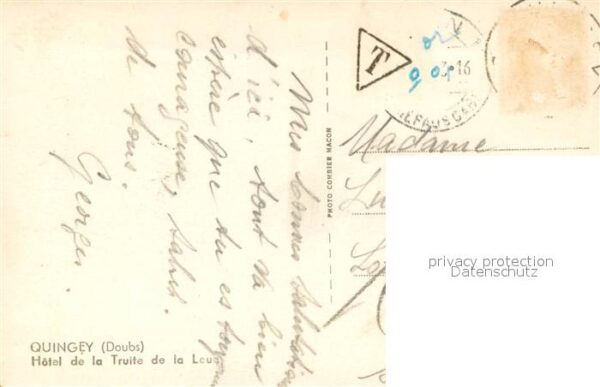 Mes bonnes salutations
d'ici. tout va bien
espère que tu es toujours
courageuse, salut
de tous.
Georges.
PHOTO COMBIER MACON
T
9,01
16
Madame
privacy protection
Datenschutz
QUINGEY (Doubs)
Hôtel de la Truite de la Loue